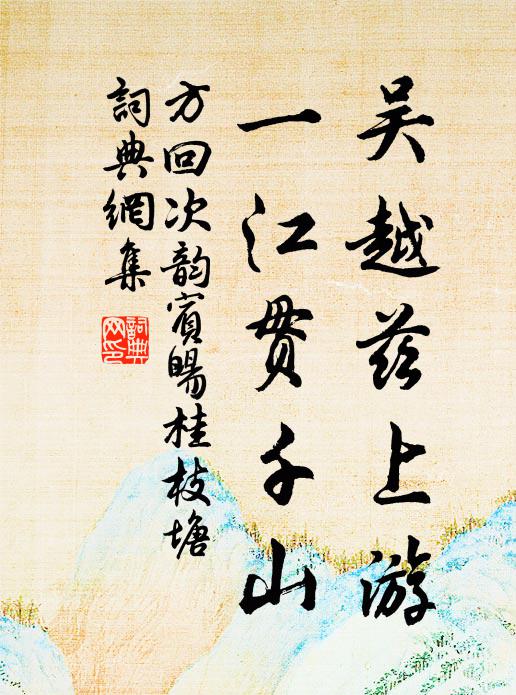 吴越兹上游
一江贯千山
方回次韵宾旸桂枝塘
詞典網集
詞典
网印